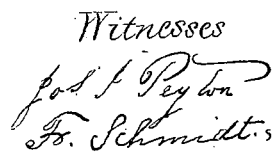 Witnesses
Jos. J. Peyton
Fr. Schmidt.